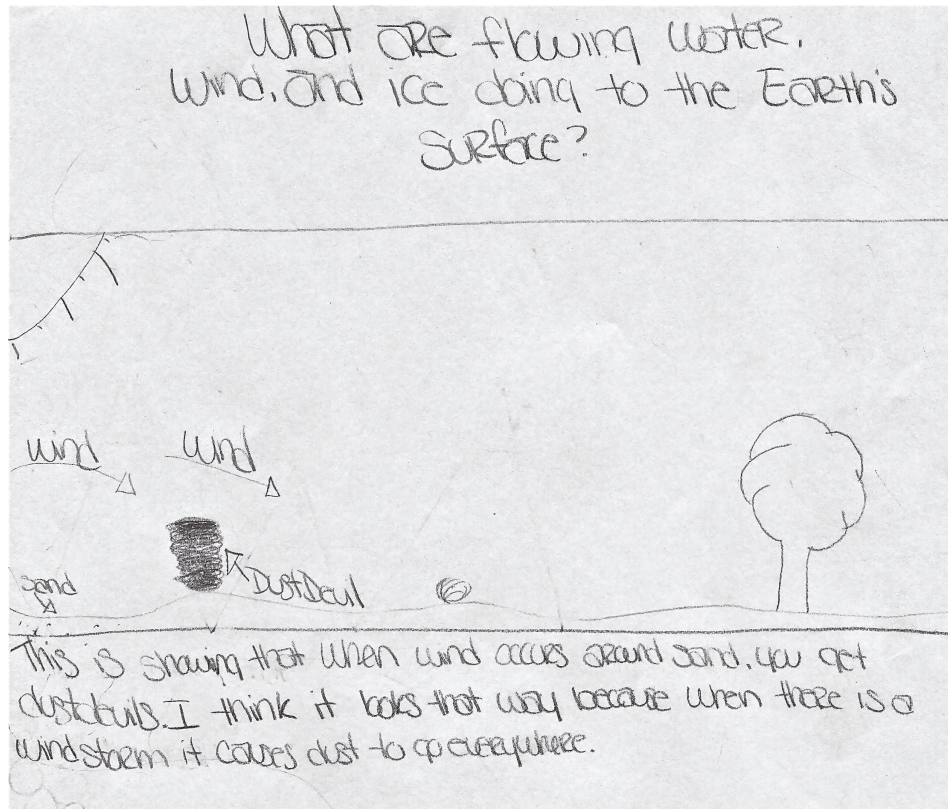 What are flowing water,
wind, and ice doing to the Earth's
surface?
wind
wind
sand
DustDevil
This is showing that when wind occurs around sand, you get
dustdevils. I think it looks that way because when there is a
windstorm it causes dust to go everywhere.